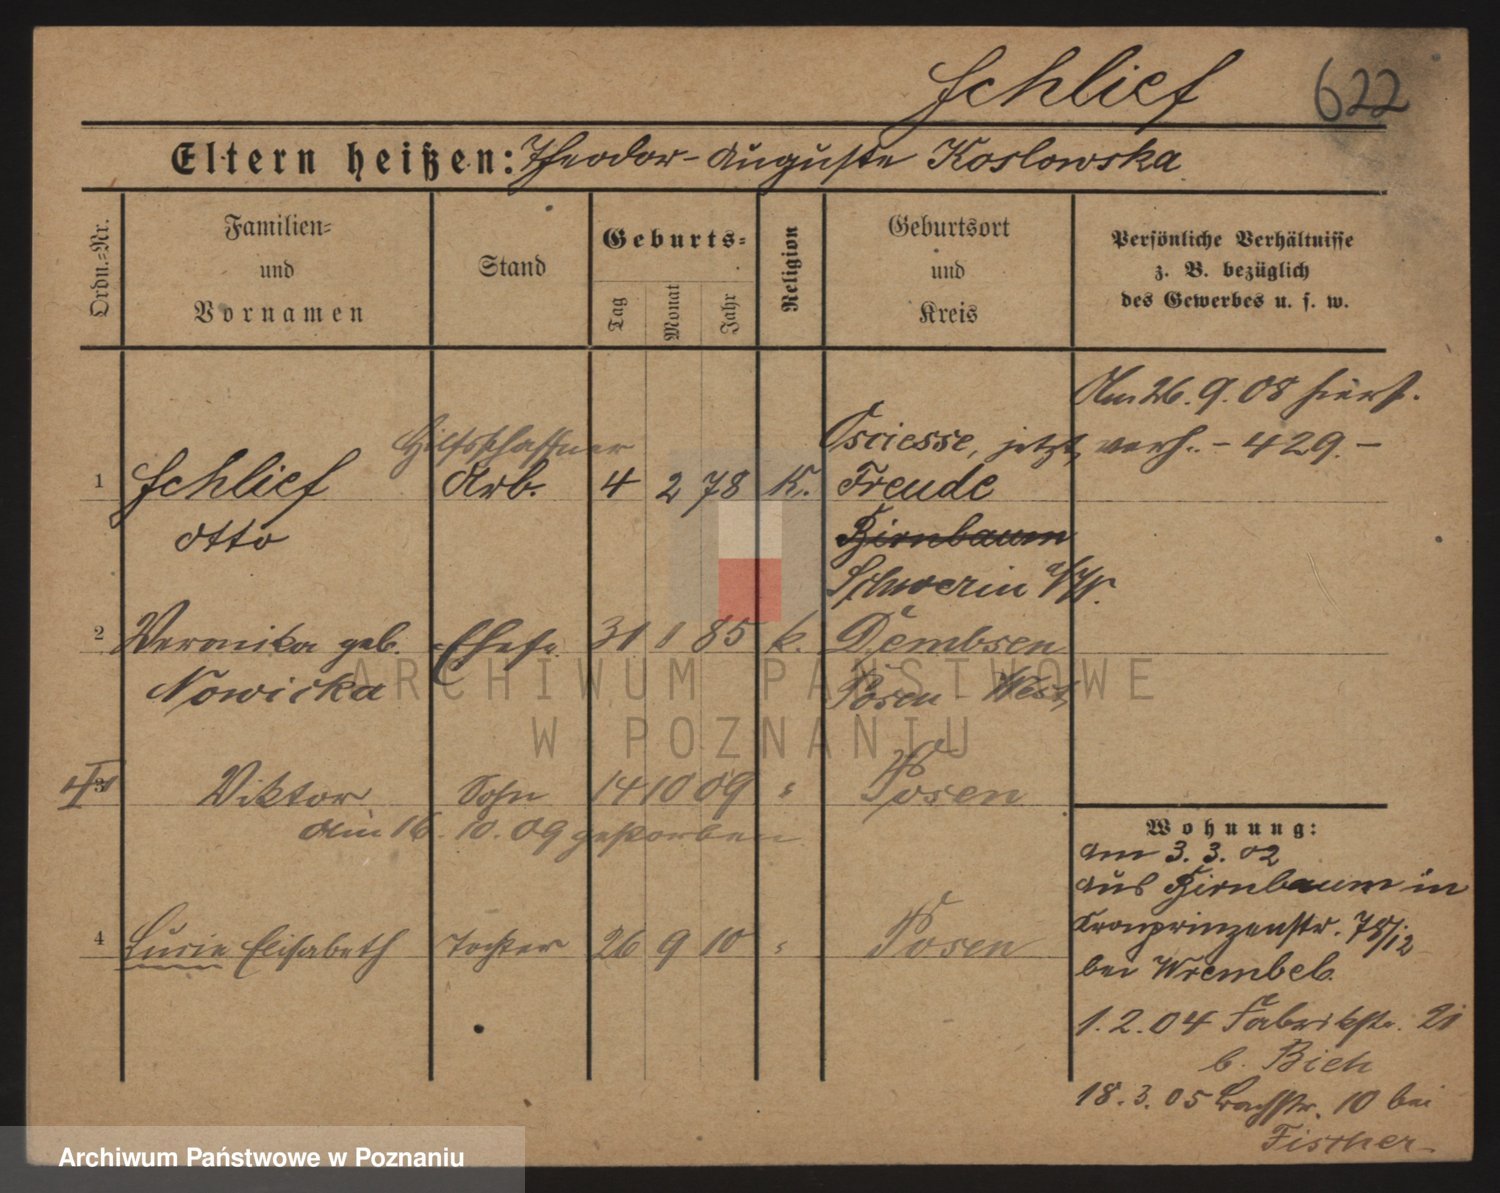 Schlief
622
Eltern heißen: Theodor - Auguste Koslowska
Ordn.-Nr.
Familien-
und
Vornamen
Stand
Geburts-
Tag
Monat
Jahr
Religion
Geburtsort
und
Kreis
Persönliche Verhältnisse
z. B. bezüglich
des Gewerbes u. s. w.
Am 26. 9. 08 hier
verh. - 429. -
Hilfsschaffner
Osciesse, jetzt
1 Schlief Arb. 4 2 78 K. Freude
Otto Birnbaum
Schwerin a/W.
2 Veronika geb. Ehefr. 31 1 85 k. Dembsen
Nowicka Posen West
3 Viktor Sohn 14 10 09 " Posen
am 16. 10. 09 gestorben
4 Lucie Elisabeth Tochter 26 9 10 " Posen
Wohnung:
am 3. 3. 02
aus Birnbaum in
Kronprinzenstr. 78/12
bei Wrembel.
1. 2. 04 Fabrikstr. 21
b. Bieh
18. 3. 05 Bachstr. 10 bei
Fischer
ARCHIWUM PAŃSTWOWE
W POZNANIU
Archiwum Państwowe w Poznaniu